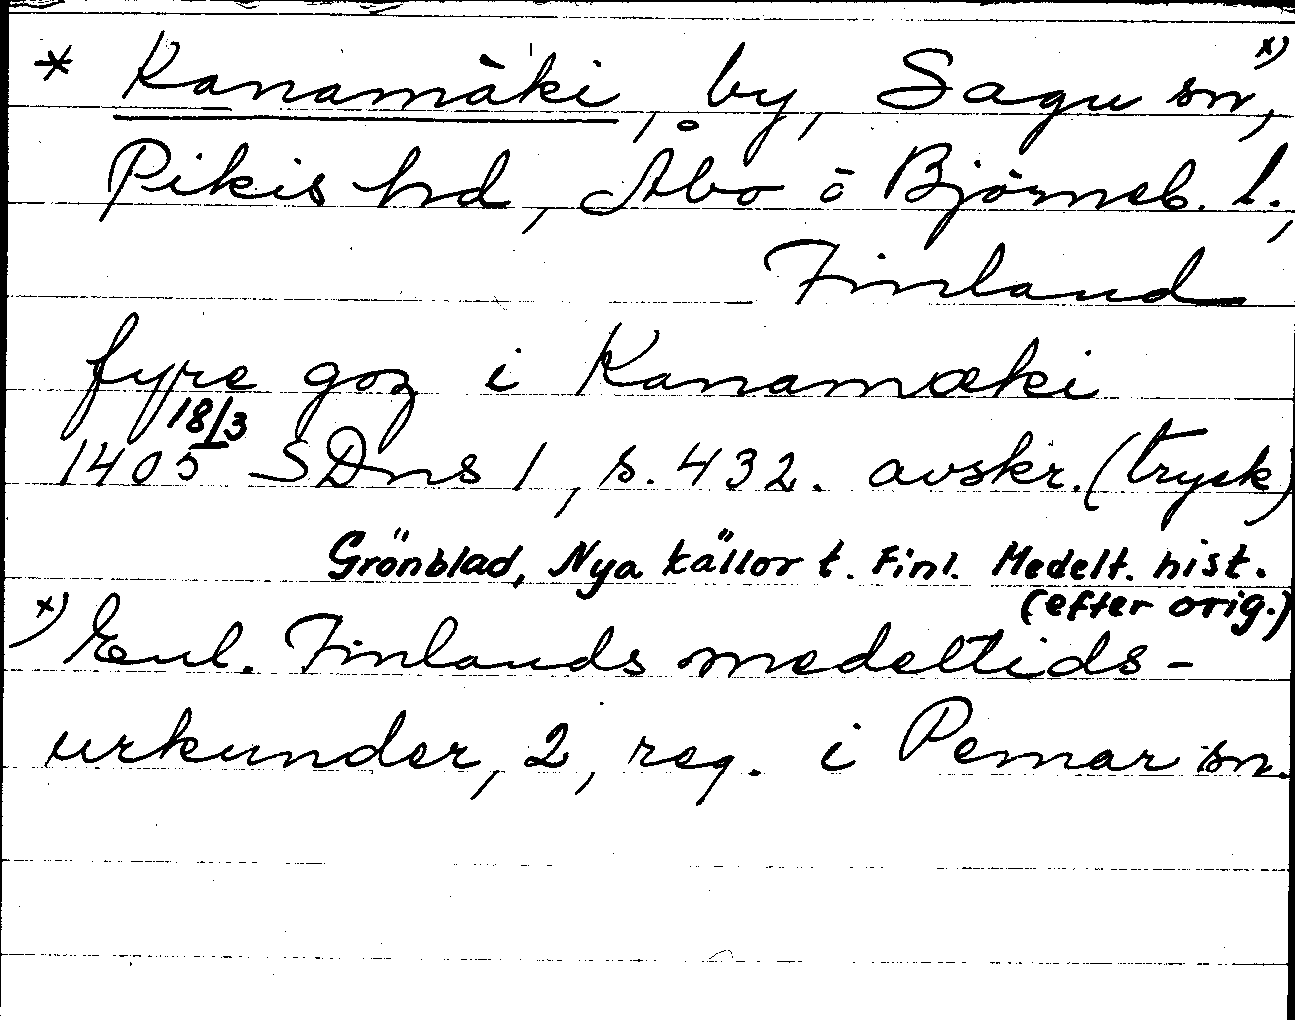 * Kanamäki, by, Sagu sn, x)
Pikis hd, Åbo o Björneb. l.,
Finland
fyre goz i Kanamæki
18/3
1405 SDns 1, s. 432. avskr. (tryck)
Grönblad, Nya källor t. Finl. Medelt. hist.
(efter orig.)
x) Enl. Finlands medeltids-
urkunder, 2, reg. i Pemar sn.